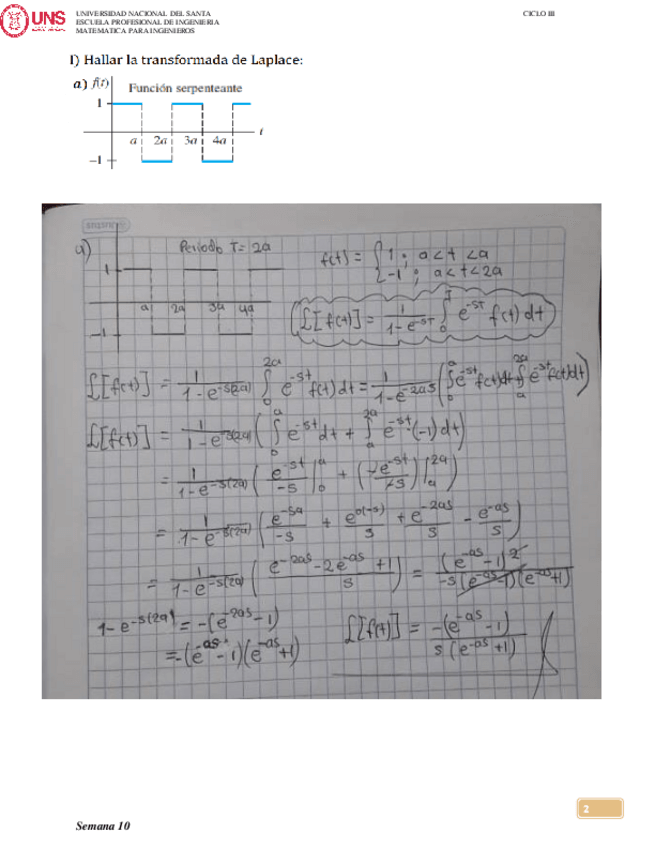 UNS
UNIVERSIDAD NACIONAL DEL SANTA
ESCUELA PROFESIONAL DE INGENIERIA
MATEMATICA PARA INGENIEROS
CICLO III
I) Hallar la transformada de Laplace:
a) f(t) Función serpenteante
1
a 2a 3a 4a t
-1
a) Periodo T= 2a
f(t) = { 1 ; a<t<a
-1 ; a<t<2a
1
a 2a 3a 4a
-1
£[f(t)] = 1/(1-e^-sT) ∫_0^T e^-sT f(t) dt
£[f(t)] = 1/(1-e^-s(2a)) ∫_0^2a e^-st f(t) dt = 1/(1-e^-2as) (∫_0^a e^-st f(t)dt + ∫_a^2a e^-st f(t)dt)
£[f(t)] = 1/(1-e^-s(2a)) (∫_0^a e^-st dt + ∫_a^2a e^-st (-1) dt)
= 1/(1-e^-s(2a)) (e^-st/-s |_0^a + (-e^-st/-s) |_a^2a)
= 1/(1-e^-s(2a)) (e^-sa/-s + e^0(-s)/s + e^-2as/s - e^-as/s)
= 1/(1-e^-s(2a)) ((e^-2as - 2e^-as +1)/s) = (e^-as -1)^2/(-s(e^-as -1)(e^-as +1))
1-e^-s(2a) = -(e^-2as -1)
=-(e^-as -1)(e^-as +1)
£[f(t)] = -(e^-as -1)/(s(e^-as +1))
2
Semana 10